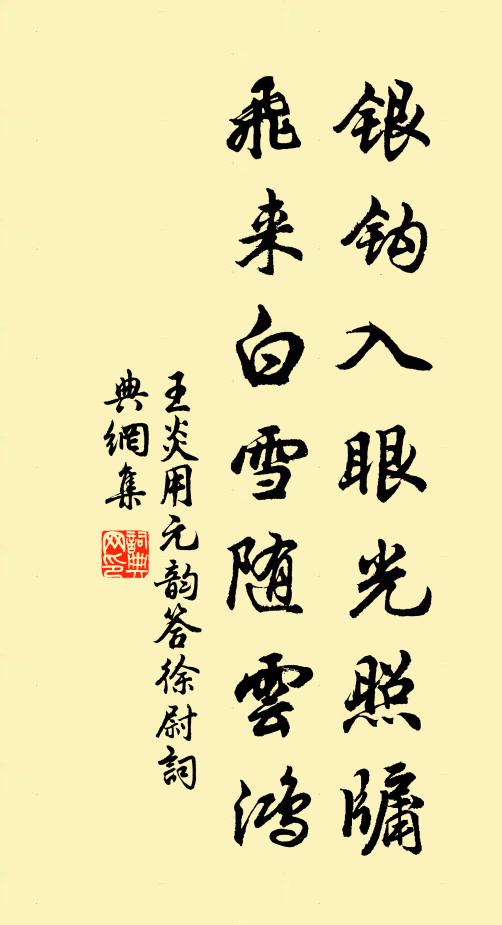 银钩入眼光照牖
飛来白雪随雲鸿
王炎用元韵答徐尉詞
典網集
詞典网印